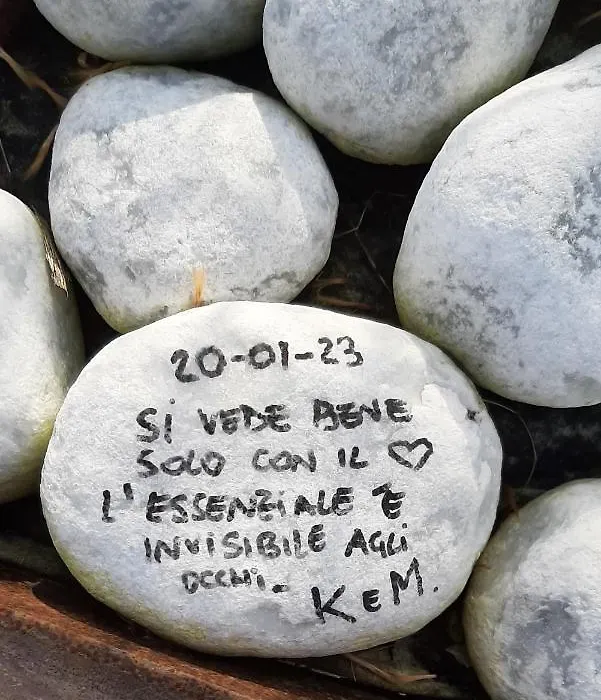 20-01-23
Si VEDE BENE
SOLO CON IL ♡
L'ESSENZIALE È
INVISIBILE AGLi
OCCHi.
K e M.